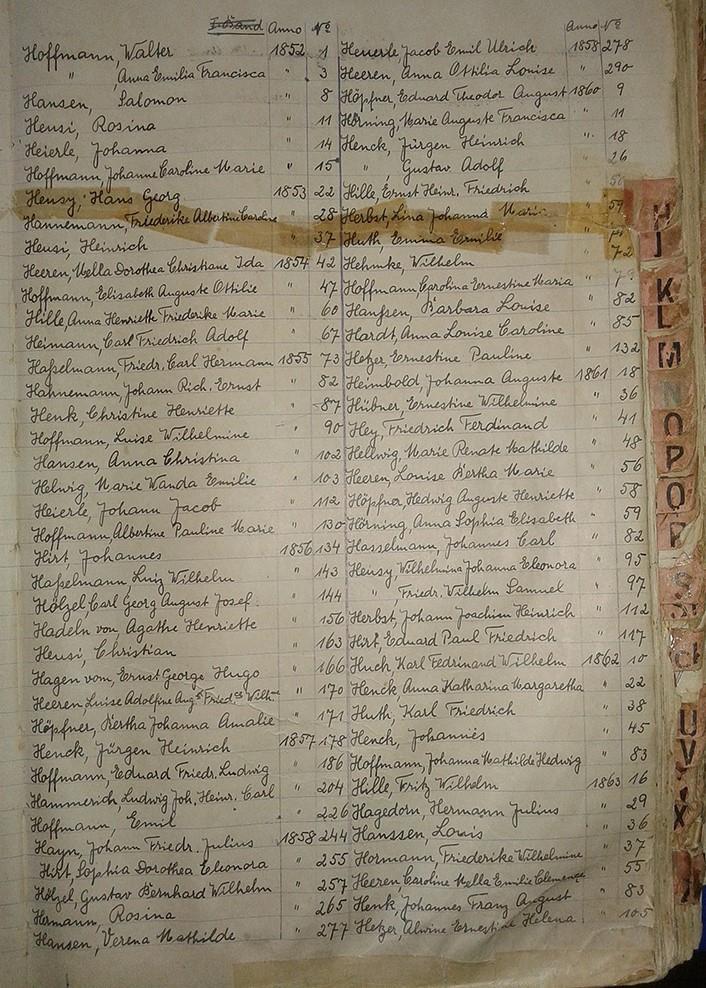 Anno No
Hoffmann, Walter 1852 1
" , Anna Emilia Francisca " 3
Hansen, Salomon " 8
Heusi, Rosina " 11
Heierle, Johanna " 14
Hoffmann, Johanne Caroline Marie " 15
Heusy, Hans Georg 1853 22
Hannemann, Friederike Albertine Caroline " 28
Heusi, Heinrich " 37
Heeren, Mella Dorothea Christiane Ida 1854 42
Hoffmann, Elisabeth Auguste Ottilie " 47
Hille, Anna Henriette Friederike Marie " 60
Heimann, Carl Friedrich Adolf " 67
Haſselmann, Friedr. Carl Hermann 1855 73
Hahnemann, Johann Rich. Ernst " 82
Henk, Christine Henriette " 87
Hoffmann, Luise Wilhelmine " 90
Hansen, Anna Christina " 102
Helwig, Marie Wanda Emilie " 103
Heierle, Johann Jacob " 112
Hoffmann, Albertine Pauline Marie " 130
Hirt, Johannes 1856 134
Haſselmann Luiz Wilhelm " 143
Hölzel, Carl Georg August Josef. " 144
Hadeln von, Agathe Henriette " 156
Heusi, Christian " 163
Hagen vom, Ernst George Hugo " 166
Heeren Luise Adolfine " 170
Höpfner, Bertha Johanna Amalie " 171
Henck, Jürgen Heinrich 1857 178
Hoffmann, Eduard Friedr. Ludwig " 186
Hammerich, Ludwig Joh. Heinr. Carl " 204
Hoffmann, Emil " 226
Hayn, Johann Friedr. Julius 1858 244
Hirt, Sophia Dorothea Eleonora " 255
Hölzel, Gustav Bernhard Wilhelm " 257
Hermann, Rosina " 265
Hansen, Verena Mathilde " 277
Anno No
Heuerle, Jacob Emil Ulrich 1858 278
Heeren, Anna Ottilia Louise " 290
Höpfner, Eduard Theodor August 1860 9
Hörning, Marie Auguste Francisca " 11
Henck, Jürgen Heinrich " 18
" , Gustav Adolf " 26
Hille, Ernst Heinr. Friedrich "
Herbst, Lina Johanna Marie " 59
Huth, Emma Emilie "
Hehmke, Wilhelm " 72
Hoffmann, Carolina Ernestine Maria "
Hanſsen, Barbara Louise " 82
Hardt, Anna Louise Caroline " 85
Hetzer, Ernestine Pauline " 132
Heimbold, Johanna Auguste 1861 18
Hübner, Ernestine Wilhelmine " 36
Hey, Friedrich Ferdinand " 41
Hellwig, Marie Renate Mathilde " 48
Heeren, Louise Bertha Marie " 56
Höpfner, Hedwig Auguste Henriette " 58
Hörning, Anna Sophia Elisabeth " 59
Hasselmann, Johannes Carl " 82
Heusy, Wilhelmina Johanna Eleonora " 95
" Friedr. Wilhelm Samuel " 97
Herbst, Johann Joachim Heinrich " 112
Hirt, Eduard Paul Friedrich " 117
Huck, Karl Ferdinand Wilhelm 1862 10
Henck Anna Katharina Margaretha " 22
Huth, Karl Friedrich " 38
Henck, Johannes " 45
Hoffmann, Johanna Mathilde Hedwig " 83
Hille, Fritz Wilhelm 1863 16
Hagedorn, Hermann Julius " 29
Hanssen, Louis " 36
Hormann, Friederike Wilhelmine " 37
Heeren, Caroline Mella Emilie Clemence " 55
Henk, Johannes Franz August " 83
Hetzer, Alwine Ernestine Helena " 105
H
J
K
L
M
N
O
P
Q
R
S
U
V
X